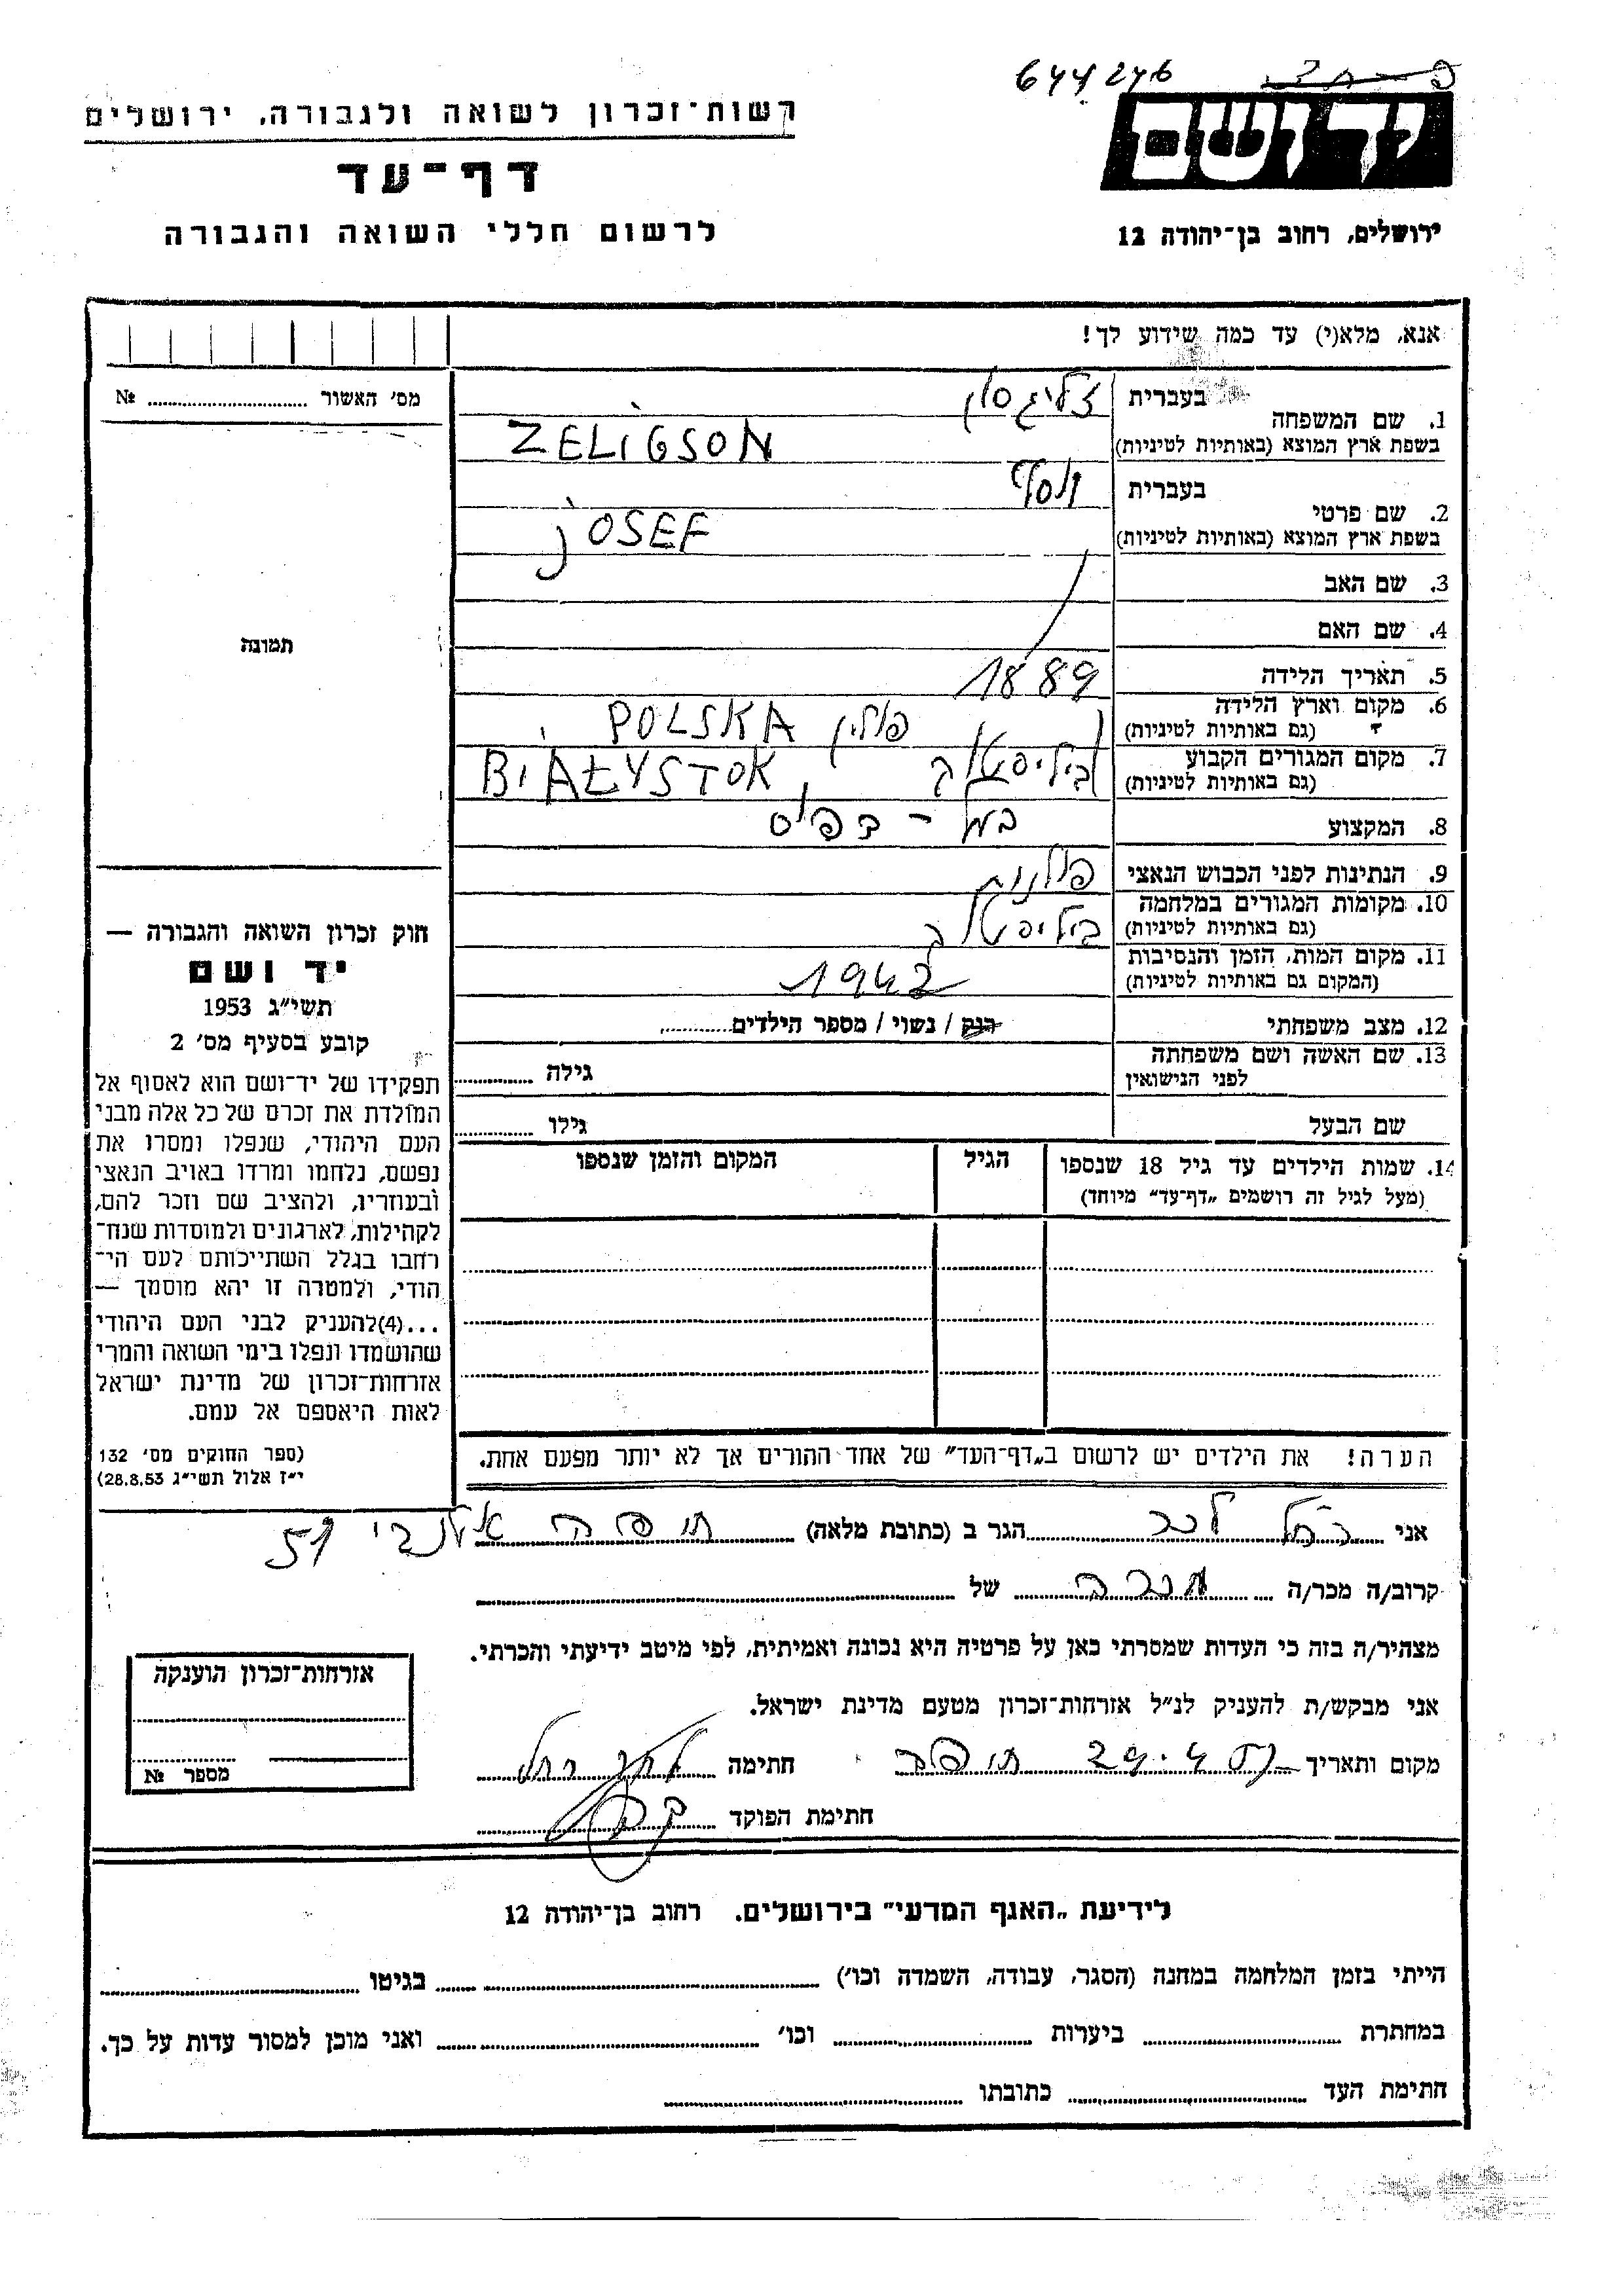 644246
רשות-זכרון לשואה ולגבורה, ירושלים
דף-עד
לרשום חללי השואה והגבורה
יד ושם
ירושלים, רחוב בן-יהודה 12
אנא, מלא(י) עד כמה שידוע לך!
מס' האשור ............ №
תמונה
1. שם המשפחה
בעברית זליגסון
בשפת ארץ המוצא (באותיות לטיניות) ZELIGSON
2. שם פרטי
בעברית יוסף
בשפת ארץ המוצא (באותיות לטיניות) JOSEF
3. שם האב
4. שם האם
5. תאריך הלידה 1889
6. מקום וארץ הלידה
(גם באותיות לטיניות) פולין POLSKA
7. מקום המגורים הקבוע
(גם באותיות לטיניות) ביליסטוק BIAŁYSTOK
8. המקצוע בעל-דפוס
9. הנתינות לפני הכבוש הנאצי פולנית
10. מקומות המגורים במלחמה
(גם באותיות לטיניות) ביליסטוק
11. מקום המות, הזמן והנסיבות
(המקום גם באותיות לטיניות) 1942
12. מצב משפחתי רוק / נשוי / מספר הילדים............
13. שם האשה ושם משפחתה
לפני הנישואין גילה ............
שם הבעל גילו ............
14. שמות הילדים עד גיל 18 שנספו
(מעל לגיל זה רושמים „דף-עד" מיוחד)
הגיל
המקום והזמן שנספו
חוק זכרון השואה והגבורה —
יד ושם
תשי"ג 1953
קובע בסעיף מס' 2
תפקידו של יד-ושם הוא לאסוף אל
המולדת את זכרם של כל אלה מבני
העם היהודי, שנפלו ומסרו את
נפשם, נלחמו ומרדו באויב הנאצי
ובעוזריו, ולהציב שם וזכר להם,
לקהילות, לארגונים ולמוסדות שנח-
רבו בגלל השתייכותם לעם הי-
הודי, ולמטרה זו יהא מוסמך —
...(4)להעניק לבני העם היהודי
שהושמדו ונפלו בימי השואה והמרי
אזרחות-זכרון של מדינת ישראל
לאות היאספם אל עמם.
(ספר החוקים מס' 132
י"ז אלול תשי"ג 28.8.53)
הערה! את הילדים יש לרשום ב„דף-העד" של אחד ההורים אך לא יותר מפעם אחת.
אני רחל הגר ב (כתובת מלאה) חיפה אלנבי 51
קרוב/ה מכר/ה של
מצהיר/ה בזה כי העדות שמסרתי כאן על פרטיה היא נכונה ואמיתית, לפי מיטב ידיעתי והכרתי.
אני מבקש/ת להעניק לנ"ל אזרחות-זכרון מטעם מדינת ישראל.
מקום ותאריך חיפה 29.4.57 חתימה רחל
חתימת הפוקד
אזרחות-זכרון הוענקה
מספר №
לידיעת „האגף המדעי" בירושלים. רחוב בן-יהודה 12
הייתי בזמן המלחמה במחנה (הסגר, עבודה, השמדה וכו') ............ בגיטו ............
במחתרת ............ ביערות ............ וכו' ............ ואני מוכן למסור עדות על כך.
חתימת העד ............ כתובתו ............